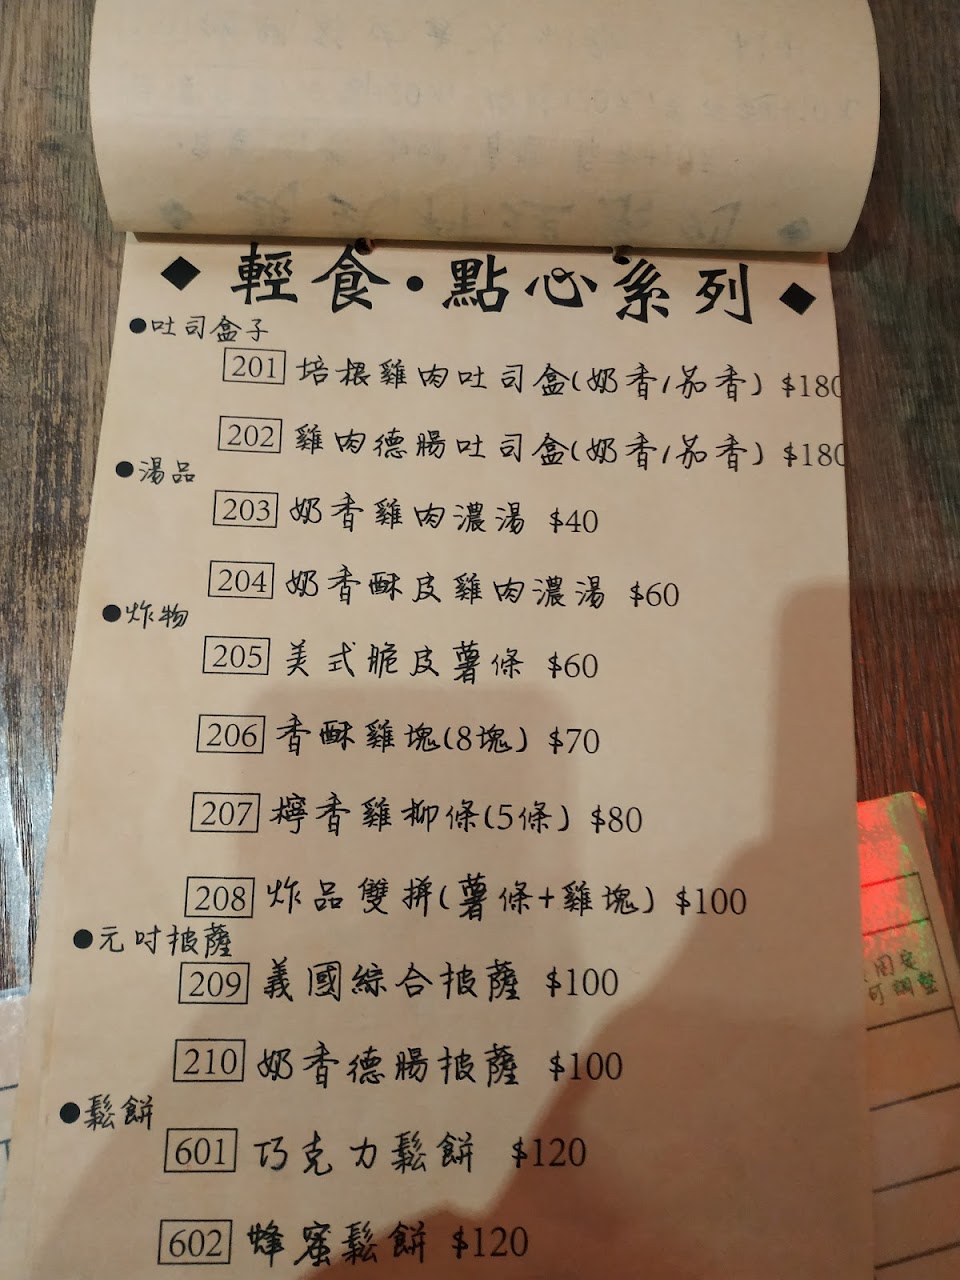 ◆ 輕食·點心系列 ◆
●吐司盒子
201 培根雞肉吐司盒(奶香/茄香) $180
202 雞肉德腸吐司盒(奶香/茄香) $180
●湯品
203 奶香雞肉濃湯 $40
204 奶香酥皮雞肉濃湯 $60
●炸物
205 美式脆皮薯條 $60
206 香酥雞塊(8塊) $70
207 檸香雞柳條(5條) $80
208 炸品雙拼(薯條+雞塊) $100
●六吋披薩
209 義國綜合披薩 $100
210 奶香德腸披薩 $100
●鬆餅
601 巧克力鬆餅 $120
602 蜂蜜鬆餅 $120
可調整